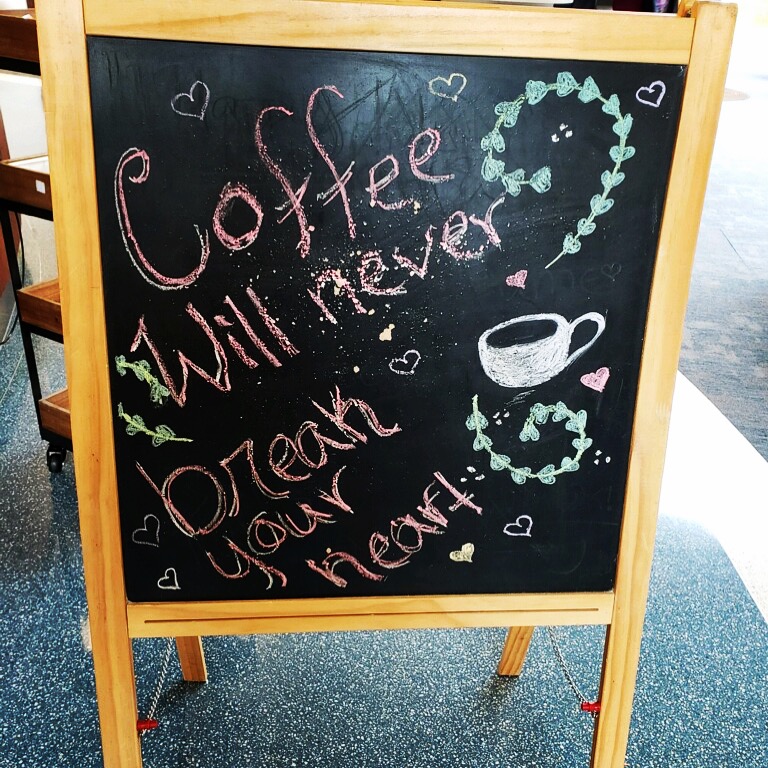 Coffee
Will never
break
your
heart